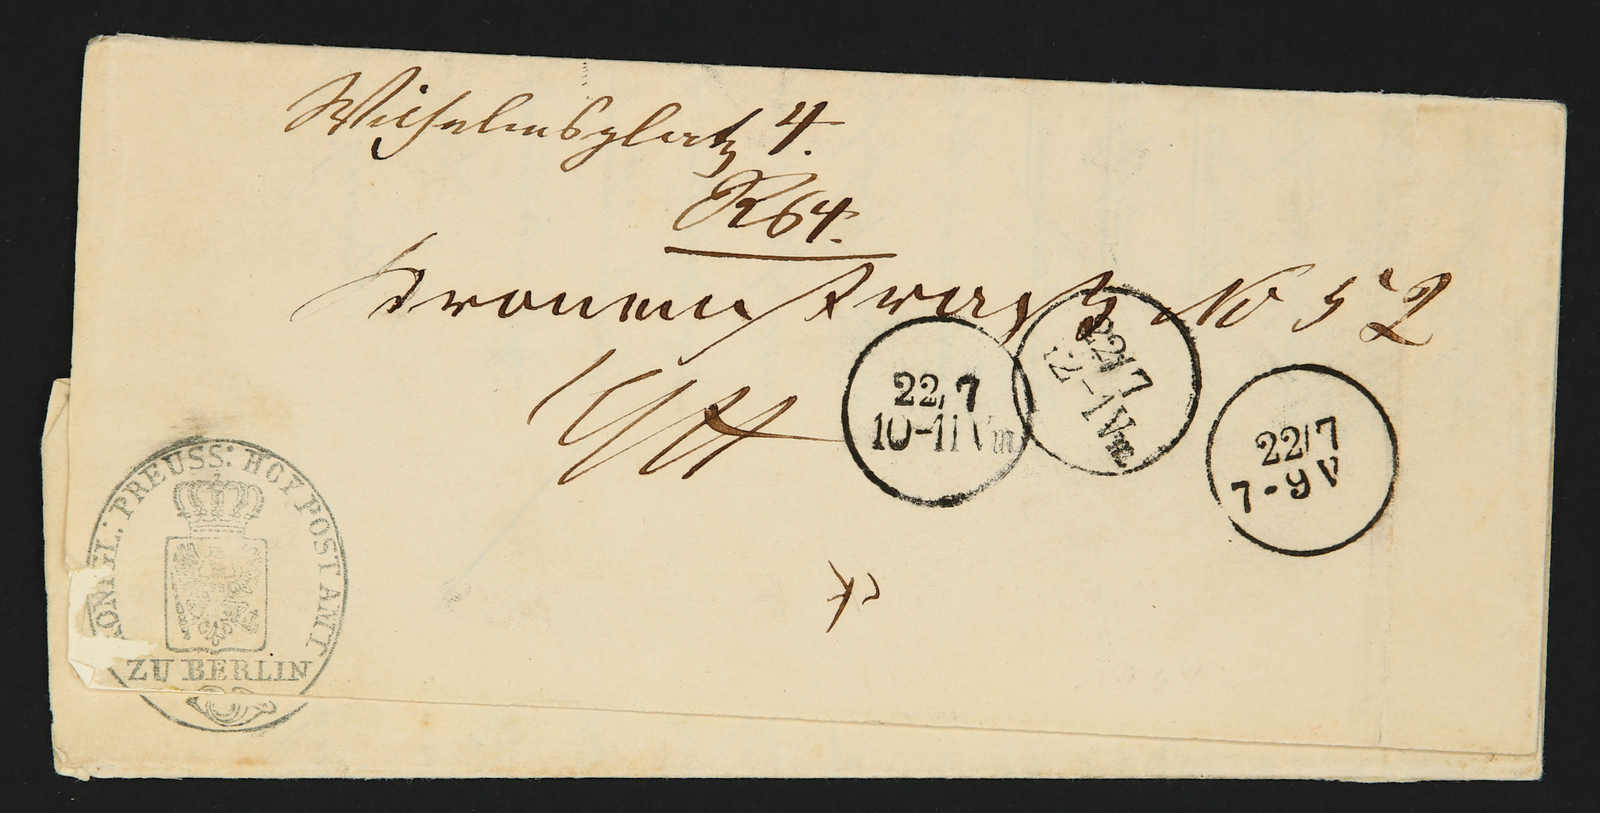 Wilhelmsplatz 4.
R64.
Kronenstraße No 52
22/7
12-1 Nm
22/7
10-11 Vm
22/7
7-9 V
KÖNIGL: PREUSS: HOF POST AMT
ZU BERLIN